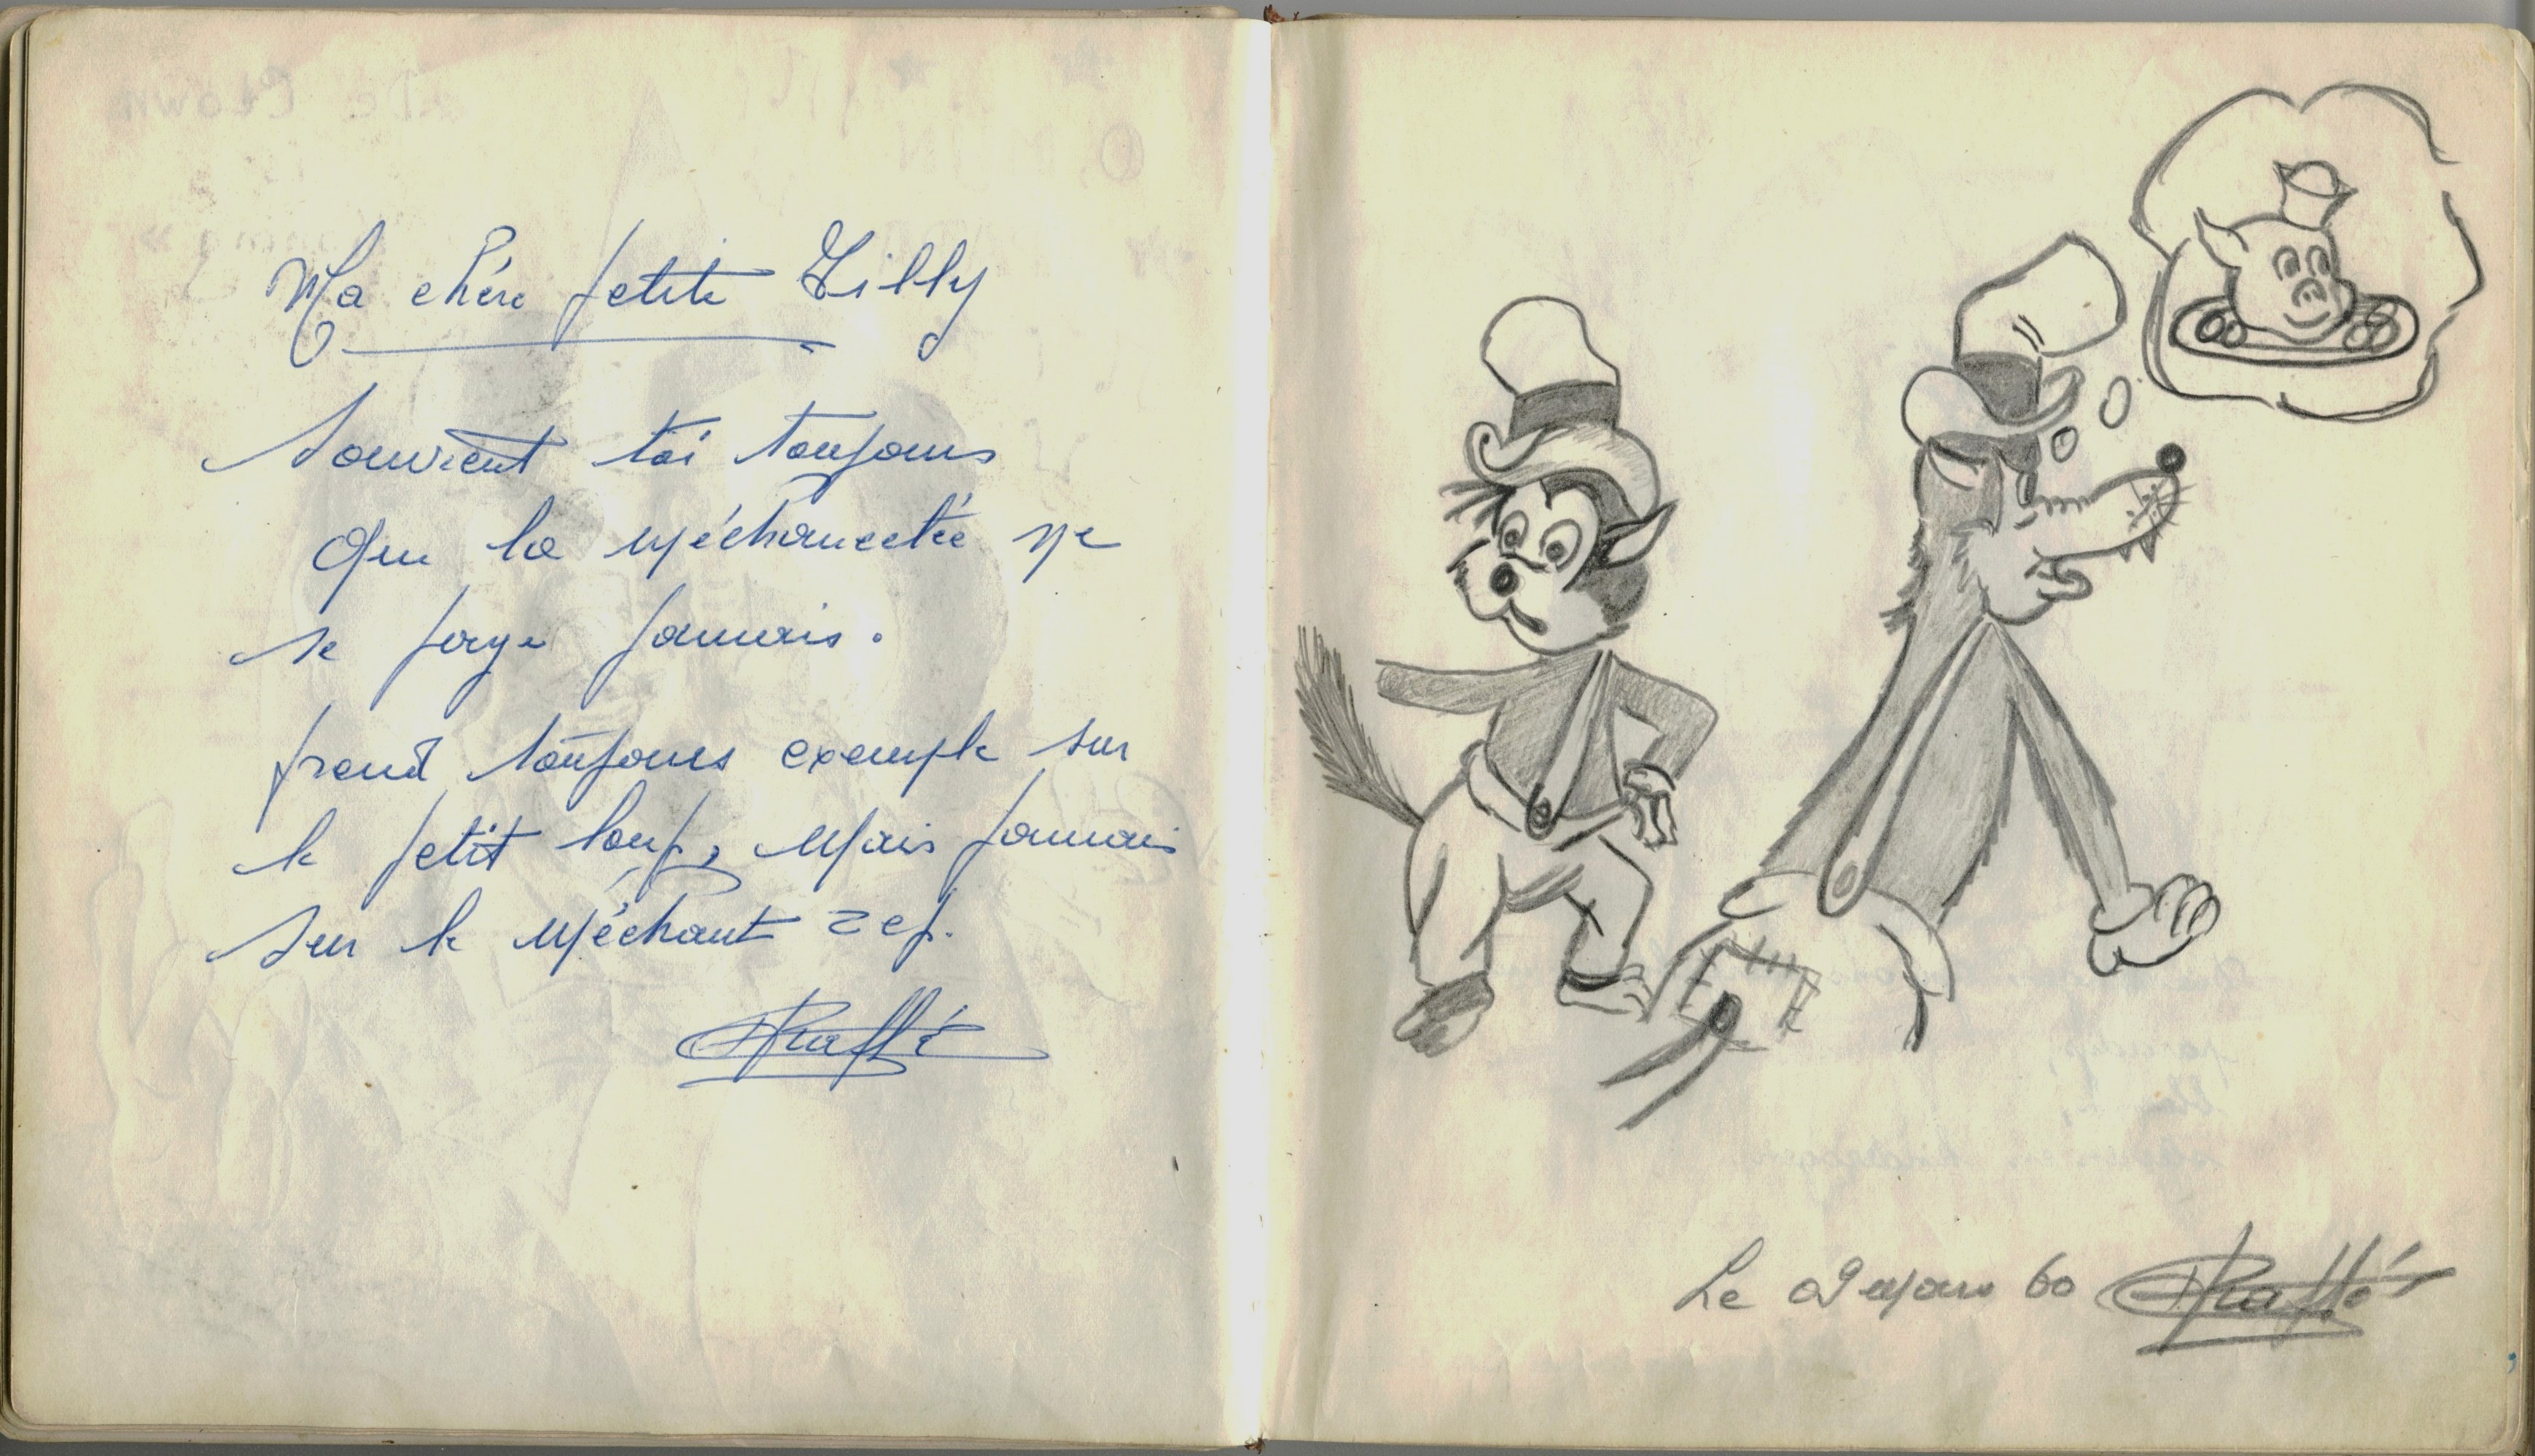 Ma chère petite Lilly
Souvient toi toujours
Que la méchancetée ne
se paye jamais.
prend toujours exemple sur
le petit loup, Mais jamais
sur le Méchant zep.
Le 09 mars 60